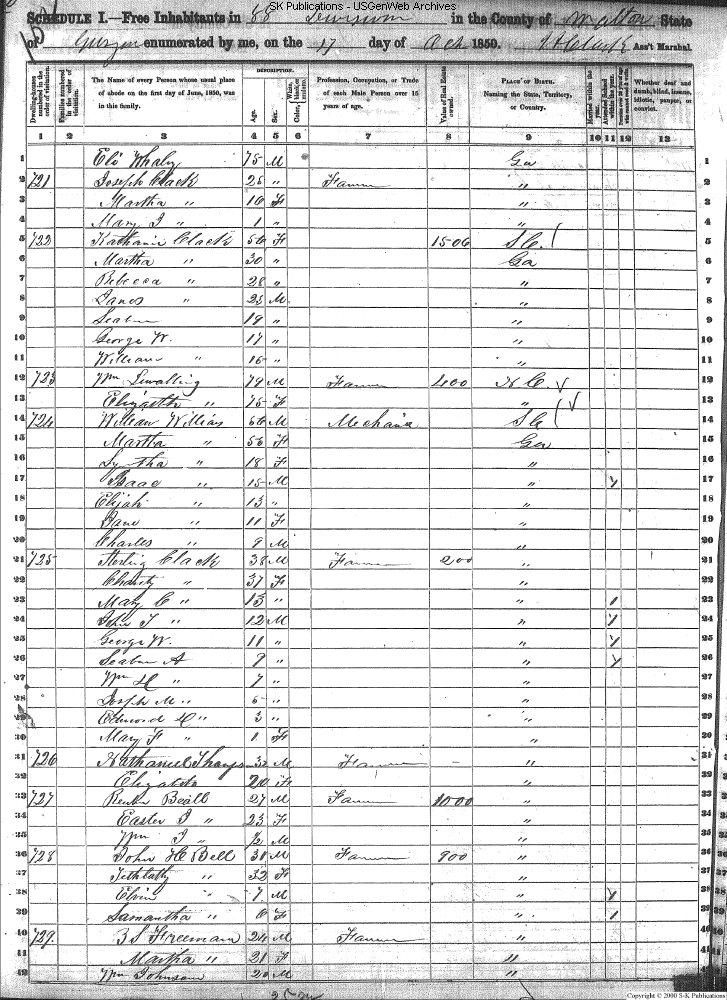 SK Publications - USGenWeb Archives
SCHEDULE I.—Free Inhabitants in 88 Division in the County of Walton State
of Georgia enumerated by me, on the 17 day of Oct 1850. Ass't Marshal.
DESCRIPTION.
Dwelling-houses numbered in the order of visitation. Families numbered in the order of visitation. The Name of every Person whose usual place of abode on the first day of June, 1850, was in this family. Age. Sex. Color, White, black, or mulatto. Profession, Occupation, or Trade of each Male Person over 15 years of age. Value of Real Estate owned. PLACE OF BIRTH. Naming the State, Territory, or Country. Married within the year. Attended School within the year. Persons over 20 y'rs of age who cannot read & write. Whether deaf and dumb, blind, insane, idiotic, pauper, or convict.
1 2 3 4 5 6 7 8 9 10 11 12 13
1 Eli Whaly 75 M Ga 1
2 721 Joseph Clack 25 " Farmer " 2
3 Martha " 16 F " 3
4 Mary J " 1 " " 4
5 722 Clack 56 F 1506 S C. 5
6 Martha " 30 " Ga 6
7 Rebecca " 28 " " 7
8 James " 23 M " 8
9 Seabun 19 " " 9
10 George W. 17 " " 10
11 William " 15 " " 11
12 723 Wm Lewalling 79 M Farmer 400 N C. 12
13 Elizabeth " 75 F " 13
14 724 William Williams 56 M Mechanic S C 14
15 Martha " 53 F Ga 15
16 " 18 F " 16
17 Isaac " 15 M " 17
18 Elijah " 13 " " 18
19 Jane " 11 F " 19
20 Charles " 9 M " 20
21 725 Sterling Clack 38 M Farmer 200 " 21
22 Charity " 37 F " 22
23 Mary C " 13 " " 1 23
24 John T " 12 M " 24
25 George W. 11 " " 25
26 Seabun A 9 " " 26
27 Wm H " 7 " " 27
28 Joseph M " 5 " " 28
29 Edmond H " 3 " " 29
30 Mary F " 1 F " 30
31 726 Nathaniel 32 M Farmer - " 31
32 Elizabeth 20 F " 32
33 727 Reubn Beall 27 M Farmer 1000 " 33
34 Easter J " 23 F " 34
35 Wm J " 1/2 M " 35
36 728 John H Bell 31 M Farmer 900 " 36
37 " 32 F " 37
38 Elvin " 7 M " 38
39 Samantha " 6 F " 1 39
40 729 Freeman 24 M Farmer " 40
41 Martha " 21 F " 41
42 Wm Johnson 20 M " 42
Copyright © 2000 S-K Publications